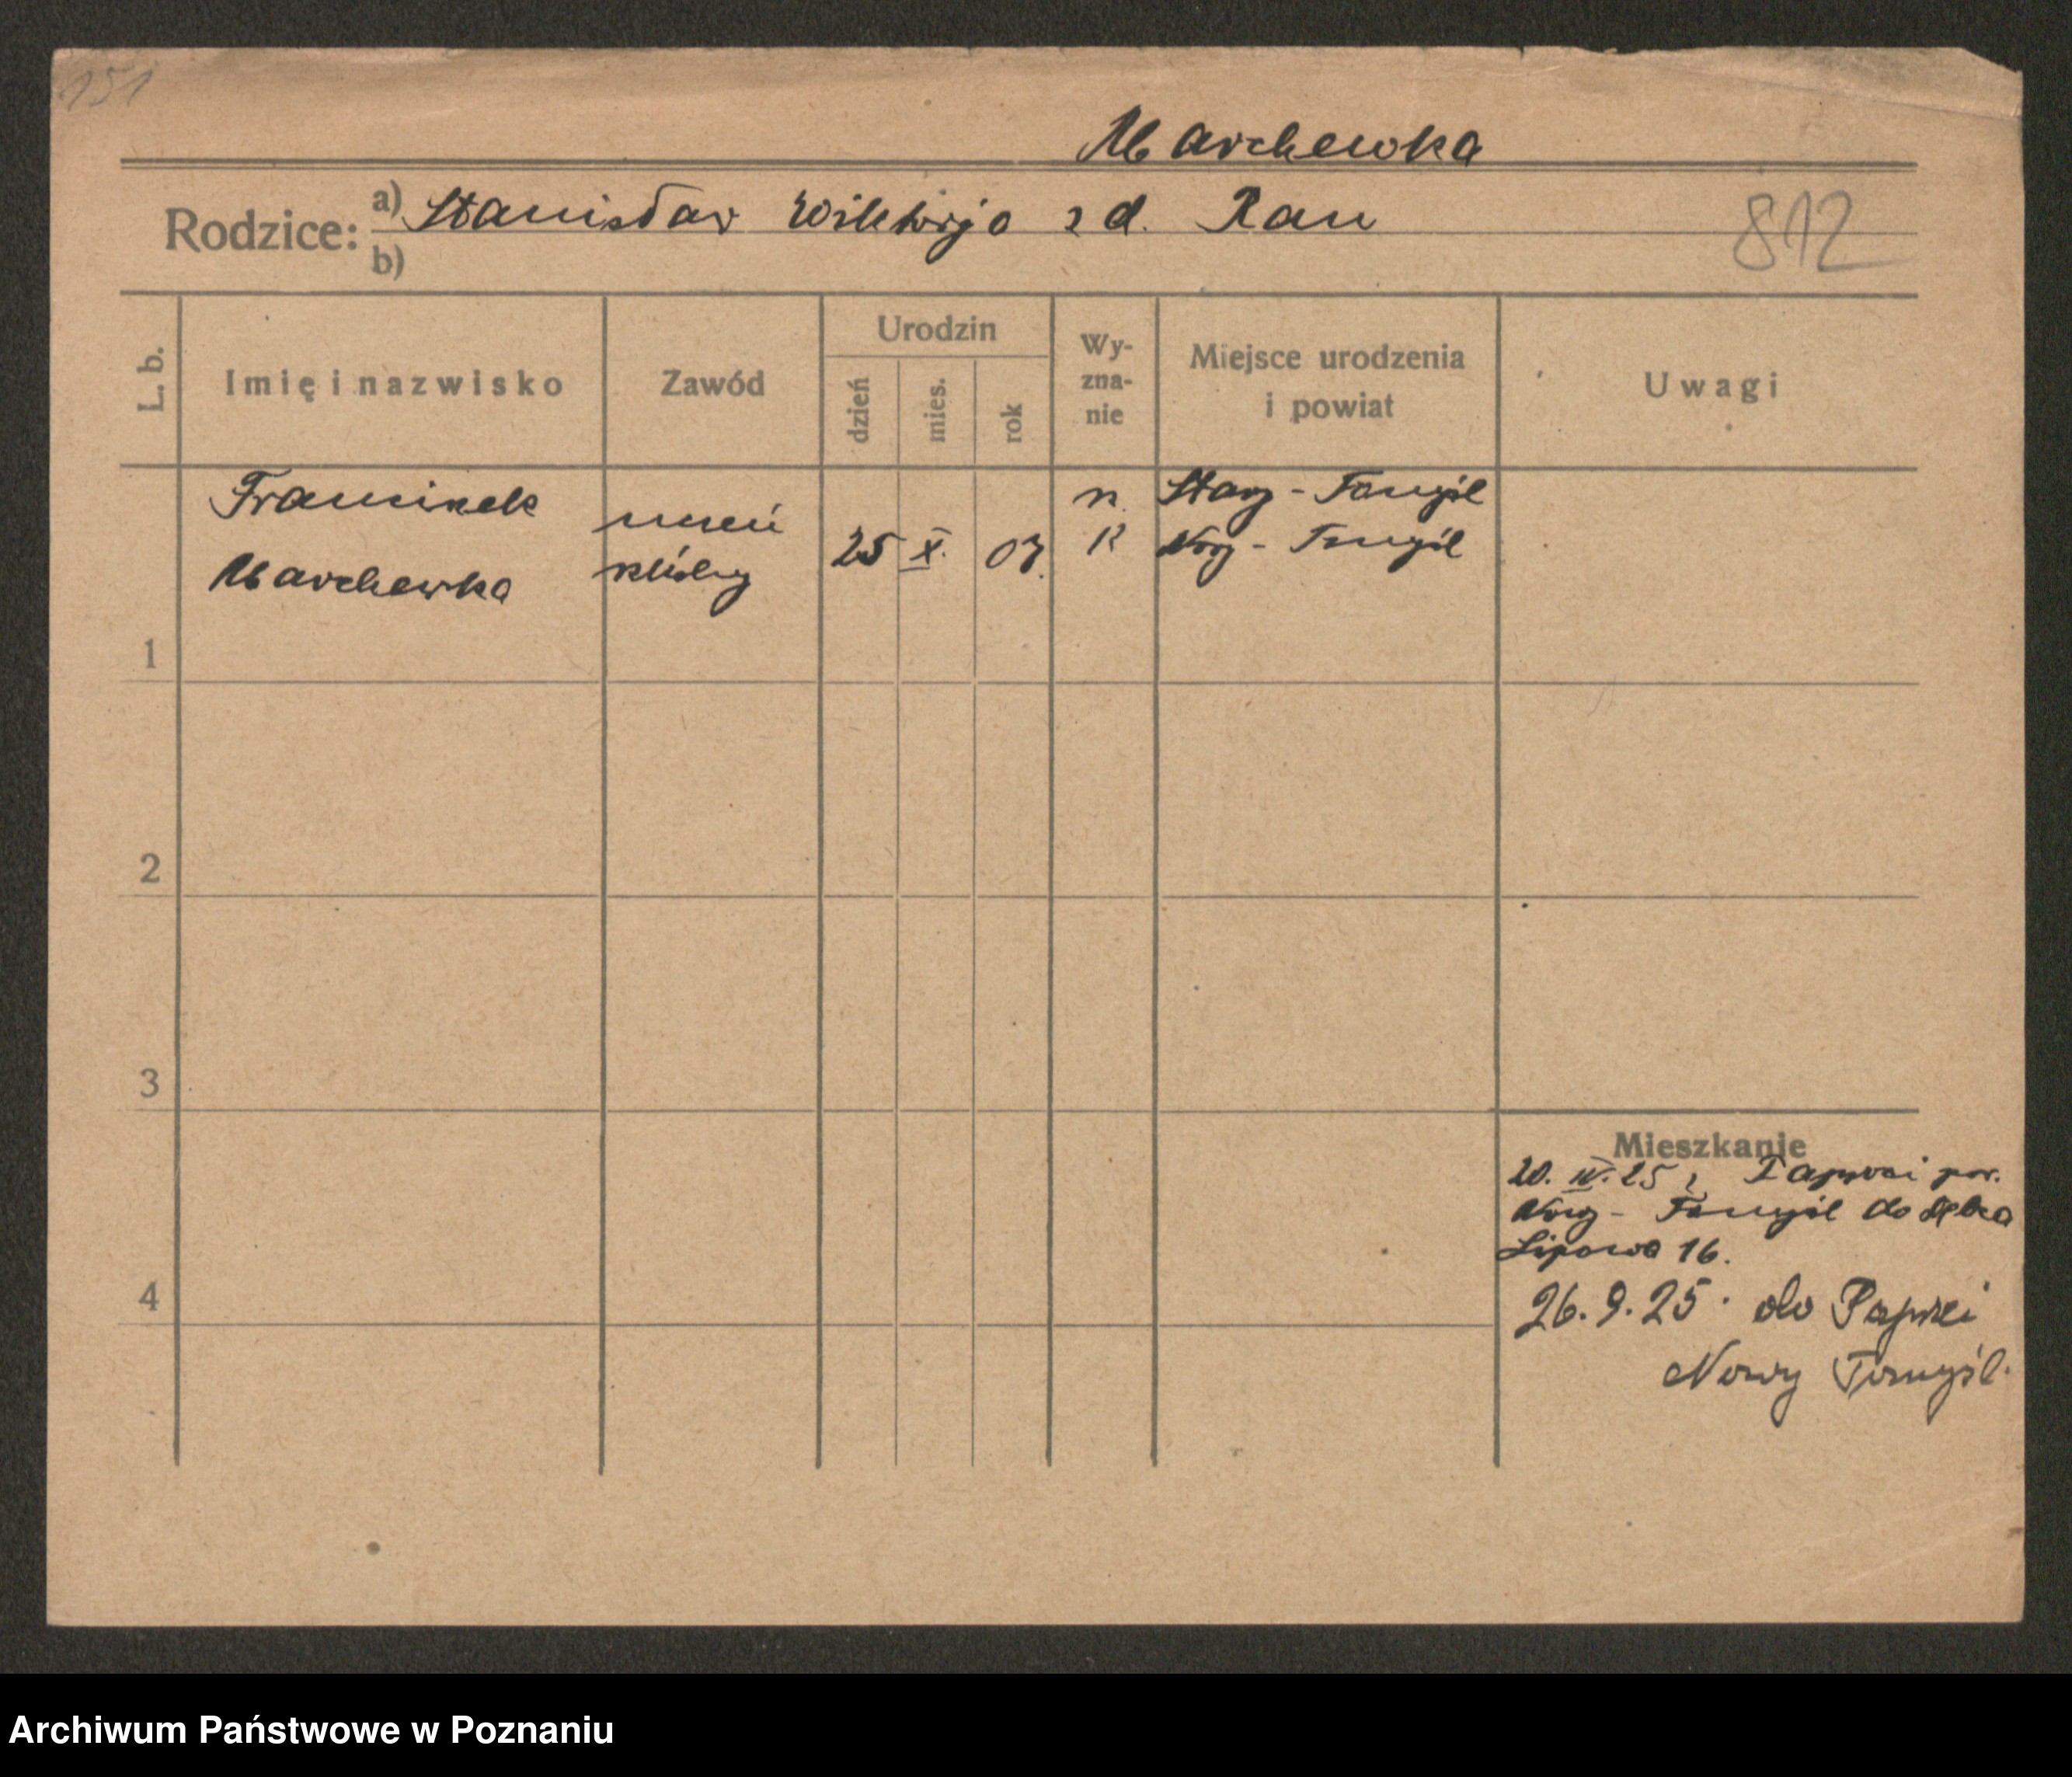 151
Marchewka
Rodzice: a) Stanisław Wiktorja z d. Rau
b)
812
L. b.
Imię i nazwisko
Zawód
Urodzin
dzień
mies.
rok
Wy-
zna-
nie
Miejsce urodzenia
i powiat
Uwagi
Franciszek
Marchewka
uczeń
25 X. 07.
r.
k
Stary-Tomyśl
Nowy-Tomyśl
1
2
3
4
Mieszkanie
20. IV. 25 z Paproci pow.
Nowy-Tomyśl do
Lipowa 16.
26.9.25. do Paproci
Nowy Tomyśl.
Archiwum Państwowe w Poznaniu